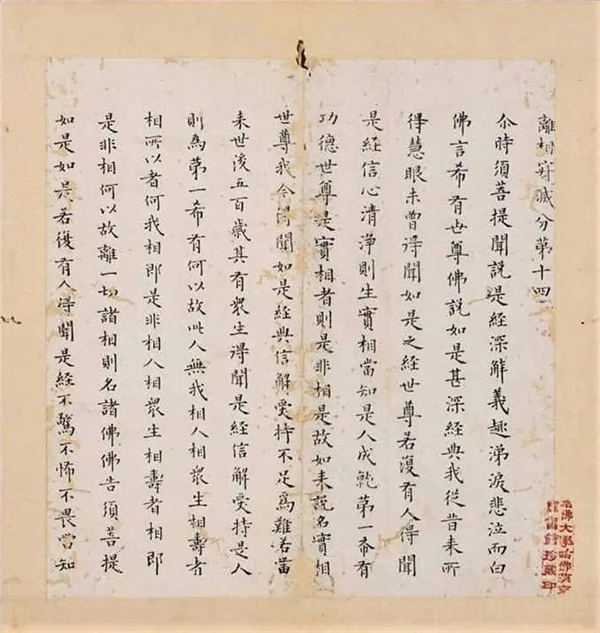 離相寂滅分第十四
尒時須菩提聞說是經深解義趣涕淚悲泣而白
佛言希有世尊佛說如是甚深經典我從昔来所
得慧眼未曾得聞如是之經世尊若復有人得聞
是經信心清淨則生實相當知是人成就第一希有
功德世尊是實相者則是非相是故如来說名實相
世尊我今得聞如是經典信解受持不足爲難若當
来世後五百歲其有衆生得聞是經信解受持是人
則爲第一希有何以故此人無我相人相衆生相壽者
相所以者何我相即是非相人相衆生相壽者相即
是非相何以故離一切諸相則名諸佛佛告須菩提
如是如是若復有人得聞是經不驚不怖不畏當知
哈佛大學哈佛燕京
圖書館珍藏印